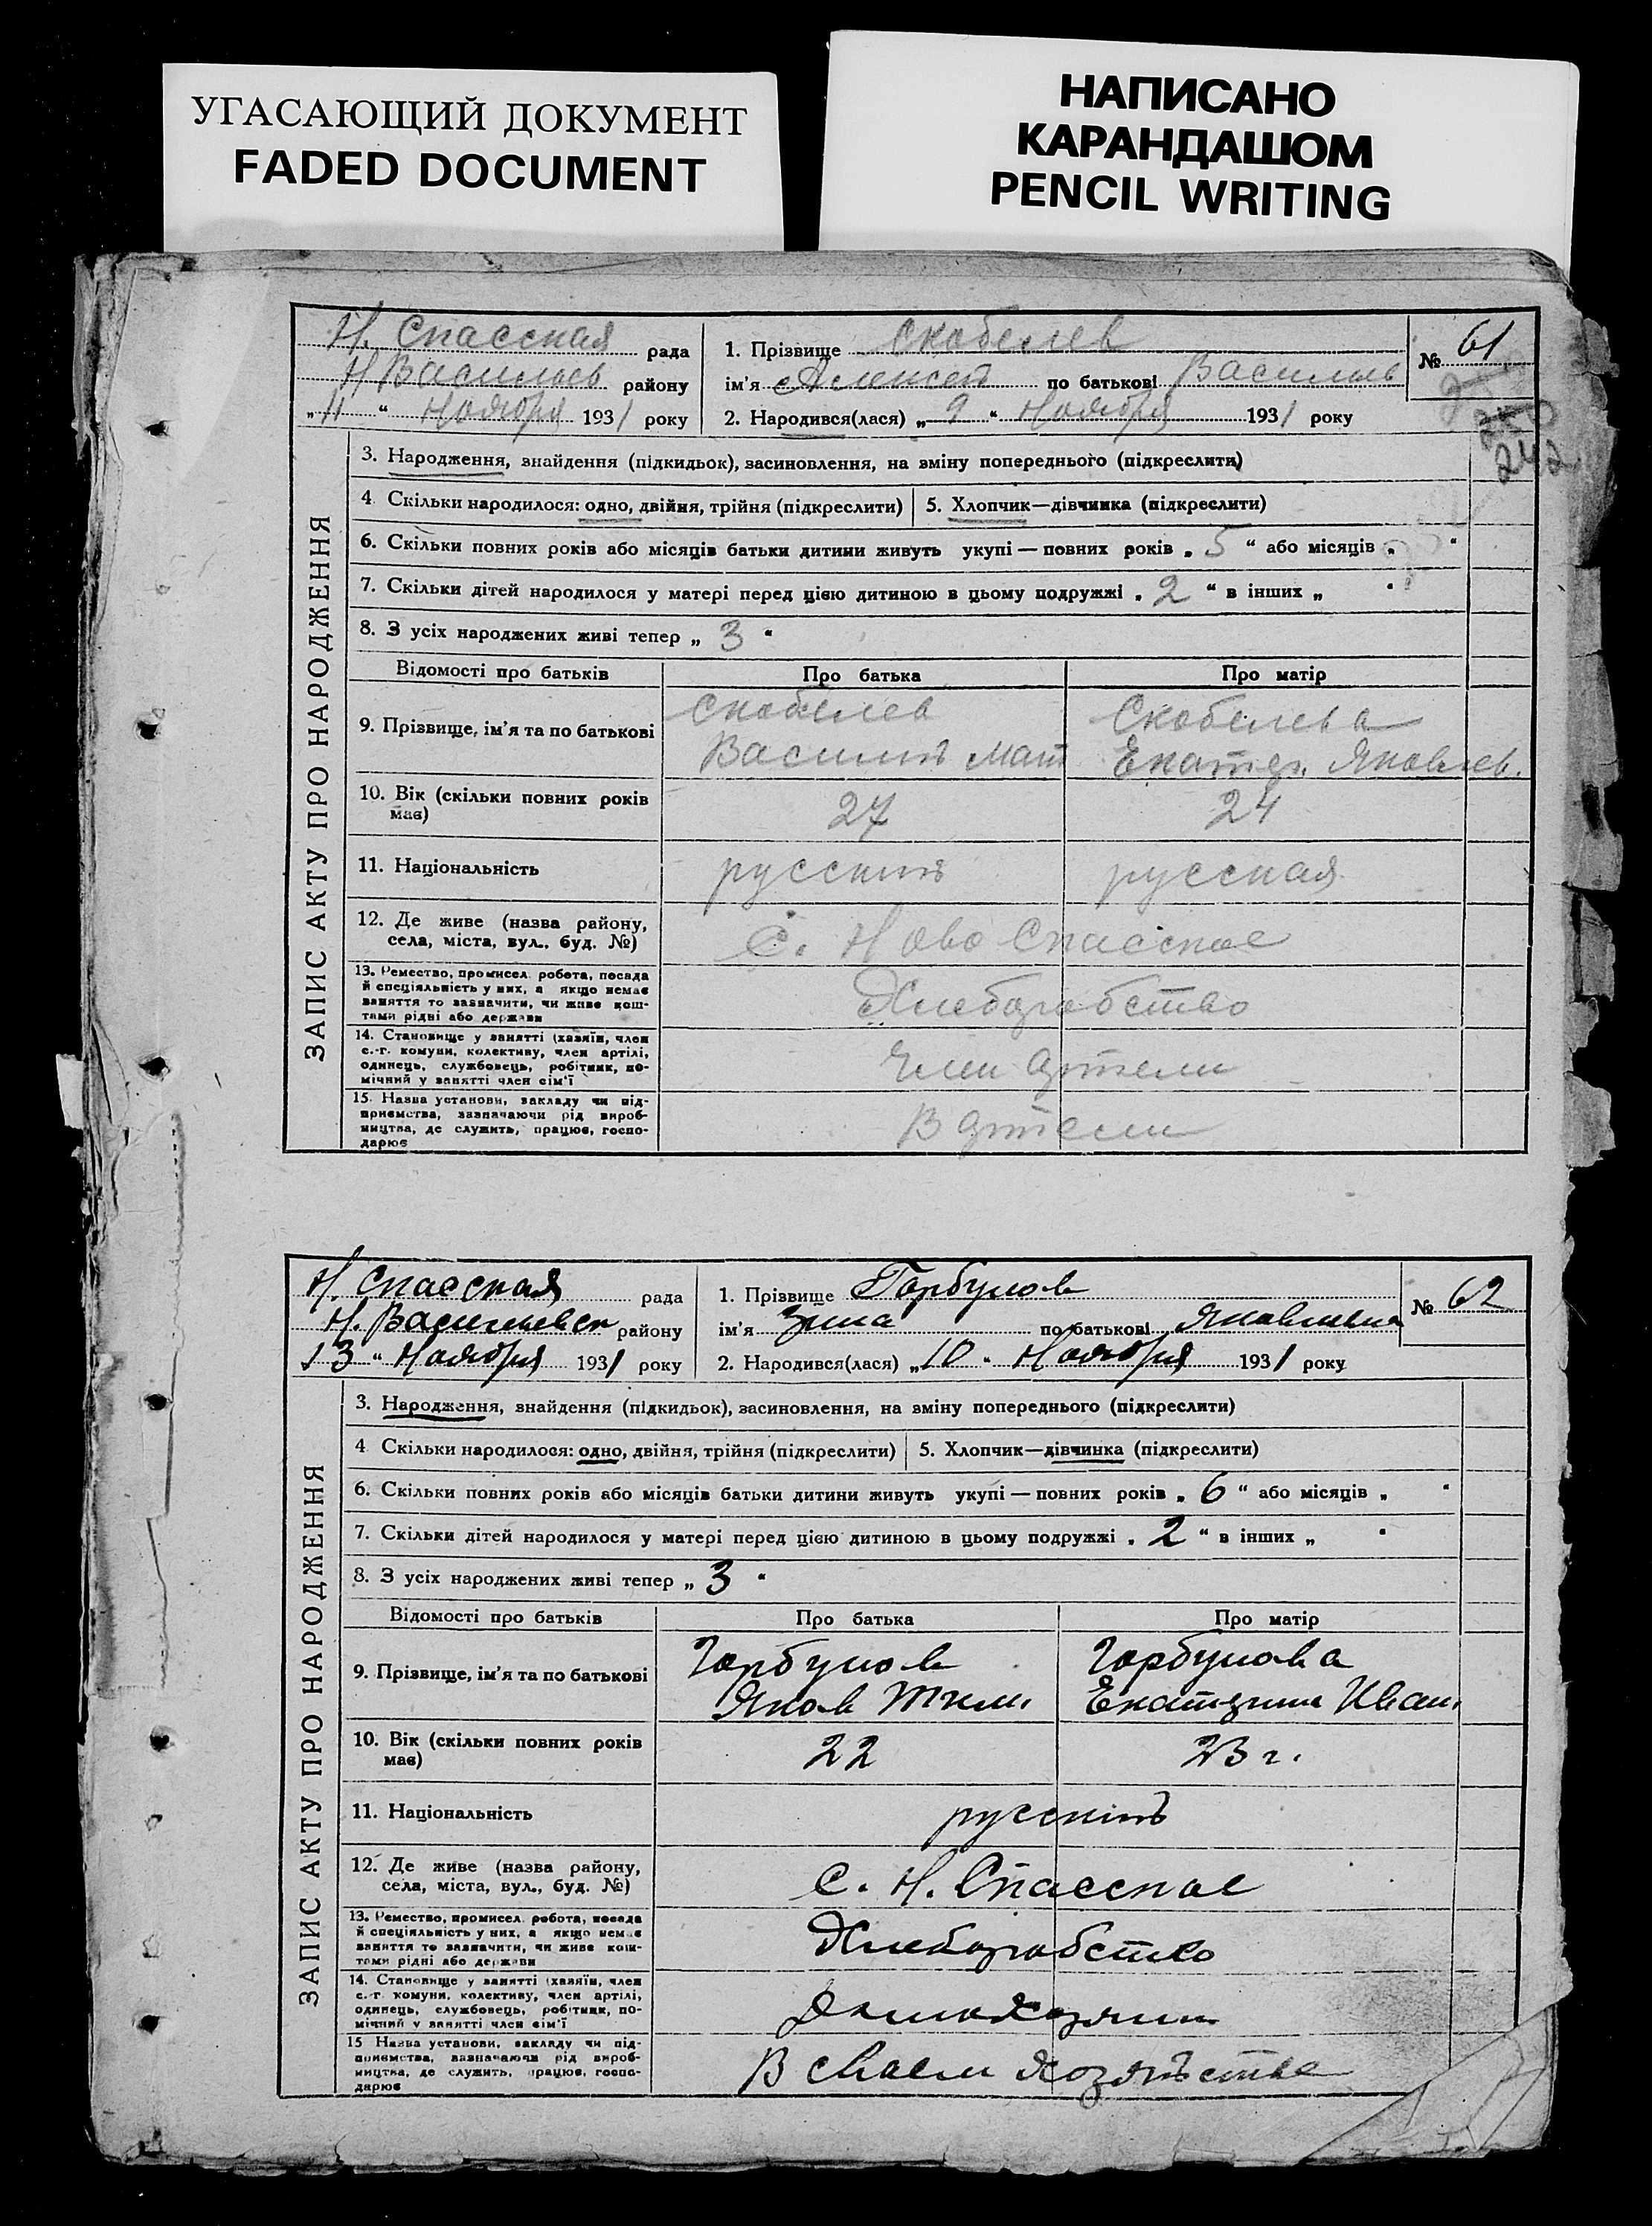 УГАСАЮЩИЙ ДОКУМЕНТ
FADED DOCUMENT
НАПИСАНО
КАРАНДАШОМ
PENCIL WRITING
ЗАПИС АКТУ ПРО НАРОДЖЕННЯ
Н. Спасская рада
Н Васильев району
„11“ Ноября 1931 року
1. Прізвище Скобелев
ім'я Алексей по батькові Василь
2. Народився(лася) „9“ Ноября 1931 року
№ 61
242
3. Народження, знайдення (підкидьок), засиновлення, на зміну попереднього (підкреслити)
4 Скільки народилося: одно, двійня, трійня (підкреслити) 5. Хлопчик—дівчинка (підкреслити)
6. Скільки повних років або місяців батьки дитини живуть укупі — повних років „5“ або місяців „ “
7. Скільки дітей народилося у матері перед цією дитиною в цьому подружжі „2“ в інших „ “
8. З усіх народжених живі тепер „3“
Відомості про батьків Про батька Про матір
9. Прізвище, ім'я та по батькові
Скобелев
Василий Мат
Скобелева
Екатер. Яковлев.
10. Вік (скільки повних років має) 27 24
11. Національність русский русская
12. Де живе (назва району,
села, міста, вул., буд. №)
с. Ново Спасское
13. Ремество, промисел робота, посада
й спеціяльність у них, а якщо немає
заняття то зазначити, чи живе кош-
тами рідні або держави
Хлеборобство
14. Становище у занятті (хазяїн, член
с.-г. комуни, колективу, член артілі,
одинець, службовець, робітник, по-
мічний у занятті член сім'ї
Член артели
15. Назва установи, закладу чи під-
приємства, зазначаючи рід вироб-
ництва, де служить, працює, госпо-
дарює
В артели
ЗАПИС АКТУ ПРО НАРОДЖЕННЯ
Н. Спасская рада
Н. Васильевск району
13 “ Ноября 1931 року
1. Прізвище Горбунов
ім'я Зина по батькові Яковлевна
2. Народився(лася) „10“ Ноября 1931 року
№ 62
3. Народження, знайдення (підкидьок), засиновлення, на зміну попереднього (підкреслити)
4 Скільки народилося: одно, двійня, трійня (підкреслити) 5. Хлопчик—дівчинка (підкреслити)
6. Скільки повних років або місяців батьки дитини живуть укупі — повних років „6“ або місяців „ “
7. Скільки дітей народилося у матері перед цією дитиною в цьому подружжі „2“ в інших „ “
8. З усіх народжених живі тепер „3“
Відомості про батьків Про батька Про матір
9. Прізвище, ім'я та по батькові
Горбунов
Яков Тим.
Горбунова
Екатерина Иван.
10. Вік (скільки повних років має) 22 23 г.
11. Національність русский
12. Де живе (назва району,
села, міста, вул., буд. №)
С. Н. Спасское
13. Ремество, промисел робота, посада
й спеціяльність у них, а якщо немає
заняття то зазначити, чи живе кош-
тами рідні або держави
Хлеборобство
14. Становище у занятті (хазяїн, член
с.-г. комуни, колективу, член артілі,
одинець, службовець, робітник, по-
мічний у занятті член сім'ї
Домохозяин
15 Назва установи, закладу чи під-
приємства, зазначаючи рід вироб-
ництва, де служить, працює, госпо-
дарює
В своем хозяйстве